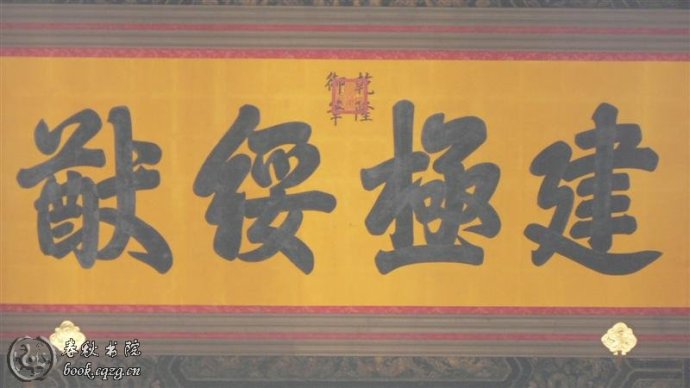 建極綏猷
乾隆
御筆
春秋书院
book.cqzg.cn